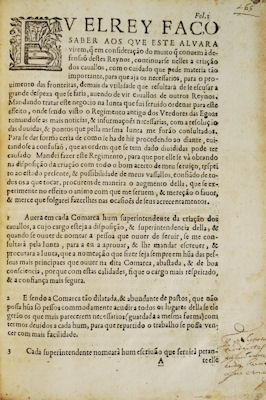 Fol. 1
EV ELREY FAÇO
SABER AOS QVE ESTE ALVARA
virem, q̃ em consideração do muito q̃ conuem à de-
fensaõ destes Reynos, continuarse nelles a criação
dos cauallos, com o cuidado que pede materia tão
importante, para que aja os necessarios, para o pro-
uimento das fronteiras, demais da vtilidade que resultarà de se escusar a
grande despeza que se fazia, auendo de vir cauallos de outros Reynos.
Mandando tratar este negocio na Iunta que fui seruido ordenar para este
effeito, onde sendo visto o Regimento antigo dos Vëdores das Egoas
tomandose as mais noticias, & informaçoẽs necessarias, com a resolução
das duuidas, & pontos que pella mesma Iunta me forão consultados.
Para se dar forma certa de como se ha de hir procedendo ao diante, eui-
tandose a confusaõ, que as ordens que se tem dado diuididas pode ter
causado. Mandei fazer este Regimento, para que por elle se và obrando
na disposição da criação com todo o bom acerto de meu seruiço, respei-
to ao estado presente, & possibilidade de meus vassallos, confiando de to-
dos os a que tocar, procurem de maneira o augmento della, que se ex-
perimente no effeito o animo com que me seruem, & mereção o fauor,
& merce que folgarei fazerlhes nas ocasioẽs de seus acrecentamentos.
1 Auerà em cada Comarca hum superintendente da criação dos
cauallos, a cujo cargo esteja a disposição, & superintendencia della, &
quando se ouuer de nomear a pessoa que ouuer de seruir, se me con-
sultarà pela Iunta, para a eu aprouar, & lhe mandar escreuer, &
procurarà a Iunta, que a nomeação que fizer seja sempre em hũa das pes-
soas mais principaes que ouuer na dita Comarca, abastada, & de boa
consciencia, porque com estas calidades, fique o cargo mais respeitado,
& a confiança mais segura.
2 E sendo a Comarca tão dilatada, & abundante de pastos, que não
possa hũ só pessoa commodamente acudir a todos os lugares della se ele-
gerão os que mais parecerem necessarios (guardada a mesma forma) com
termos deuidos a cada hum, para que repartido o trabalho se possa ven-
cer com mais facilidade.
3 Cada superintendente nomearà hum escriuão que seruirà peran-
A
te elle